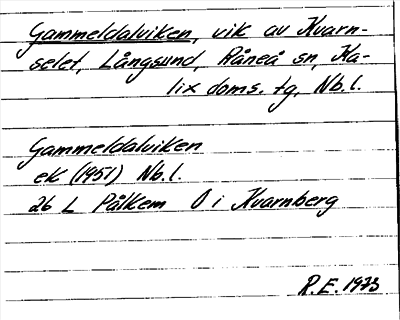 Gammeldalviken, vik av Kvarn-
selet, Långsund, Råneå sn, Ka-
lix doms. tg, Nb.l.
Gammeldalviken
ek (1951) Nb.l.
26 L Pålkem O i Kvarnberg
R.E. 1973